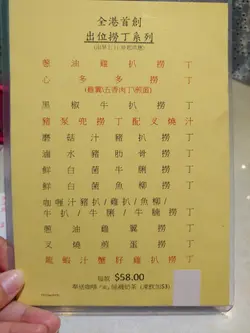 全港首創
出位撈丁系列
蔥油雞扒撈丁
心多多撈丁
黑椒牛扒撈丁
豬潤兜撈丁配叉燒汁
蘑菇汁豬扒撈丁
滷水豬肋骨撈丁
鮮白菌牛脷撈丁
鮮白菌魚柳撈丁
咖喱汁豬扒/雞扒/魚柳/
牛扒/牛脷/牛腩撈丁
蔥油雞翼撈丁
叉燒煎蛋撈丁
龍蝦汁蟹籽雞扒撈丁
每款 $58.00